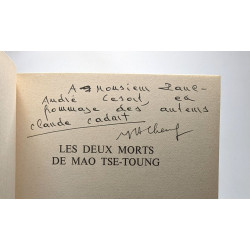 A Monsieur Zane-
André Cesort, en
hommage des auteurs
Claude Cadart
LES DEUX MORTS
DE MAO TSE-TOUNG